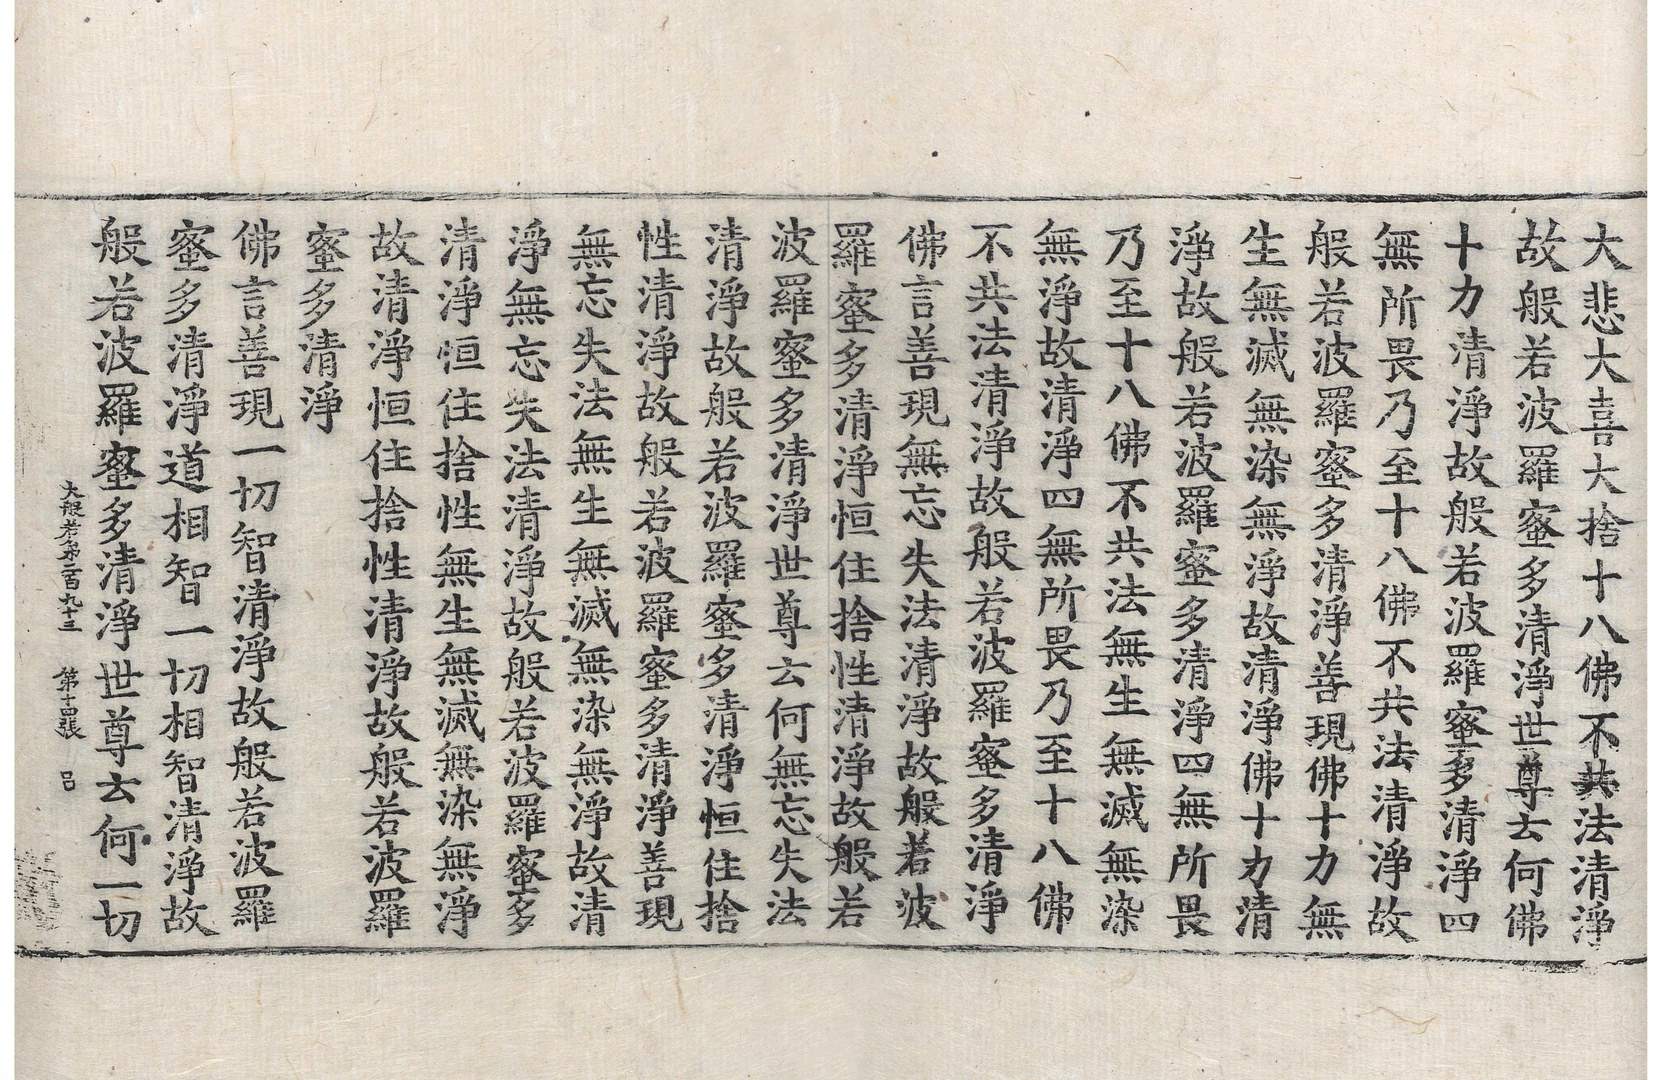 大悲大喜大捨十八佛不共法清淨
故般若波羅蜜多清淨世尊云何佛
十力清淨故般若波羅蜜多清淨四
無所畏乃至十八佛不共法清淨故
般若波羅蜜多清淨善現佛十力無
生無滅無染無淨故清淨佛十力清
淨故般若波羅蜜多清淨四無所畏
乃至十八佛不共法無生無滅無染
無淨故清淨四無所畏乃至十八佛
不共法清淨故般若波羅蜜多清淨
佛言善現無忘失法清淨故般若波
羅蜜多清淨恒住捨性清淨故般若
波羅蜜多清淨世尊云何無忘失法
清淨故般若波羅蜜多清淨恒住捨
性清淨故般若波羅蜜多清淨善現
無忘失法無生無滅無染無淨故清
淨無忘失法清淨故般若波羅蜜多
清淨恒住捨性無生無滅無染無淨
故清淨恒住捨性清淨故般若波羅
蜜多清淨
佛言善現一切智清淨故般若波羅
蜜多清淨道相智一切相智清淨故
般若波羅蜜多清淨世尊云何一切
大般若經第二百九十三 第十四張 呂